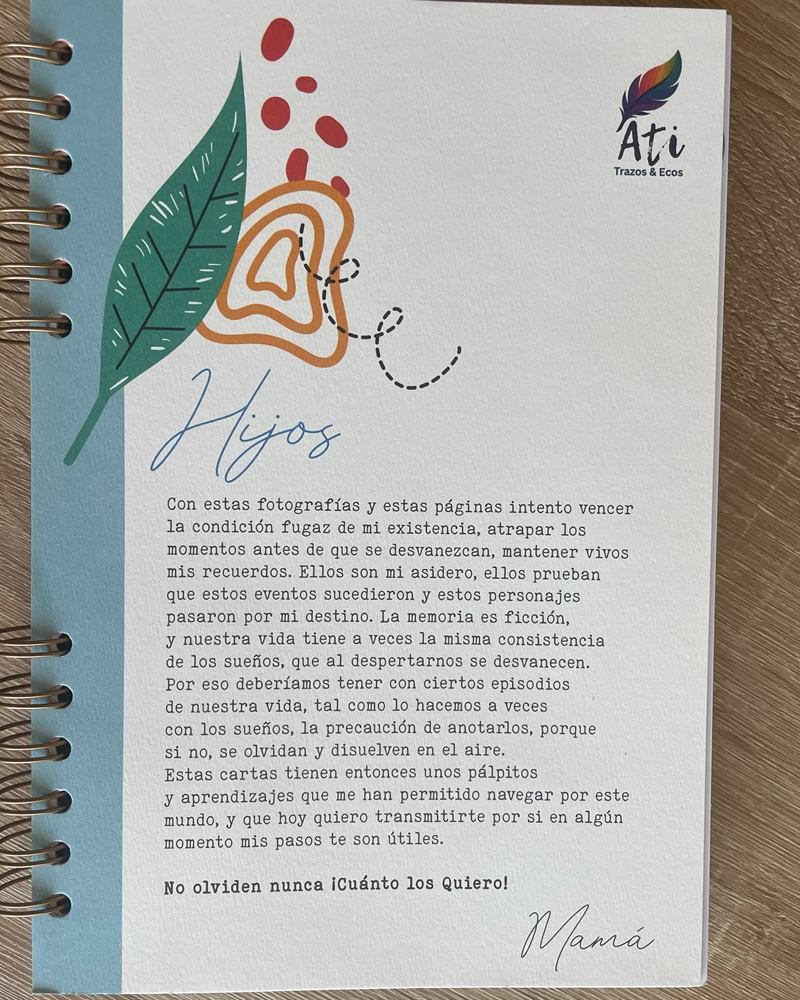 Ati
Trazos & Ecos
Hijos
Con estas fotografías y estas páginas intento vencer
la condición fugaz de mi existencia, atrapar los
momentos antes de que se desvanezcan, mantener vivos
mis recuerdos. Ellos son mi asidero, ellos prueban
que estos eventos sucedieron y estos personajes
pasaron por mi destino. La memoria es ficción,
y nuestra vida tiene a veces la misma consistencia
de los sueños, que al despertarnos se desvanecen.
Por eso deberíamos tener con ciertos episodios
de nuestra vida, tal como lo hacemos a veces
con los sueños, la precaución de anotarlos, porque
si no, se olvidan y disuelven en el aire.
Estas cartas tienen entonces unos pálpitos
y aprendizajes que me han permitido navegar por este
mundo, y que hoy quiero transmitirte por si en algún
momento mis pasos te son útiles.
No olviden nunca ¡Cuánto los Quiero!
Mamá